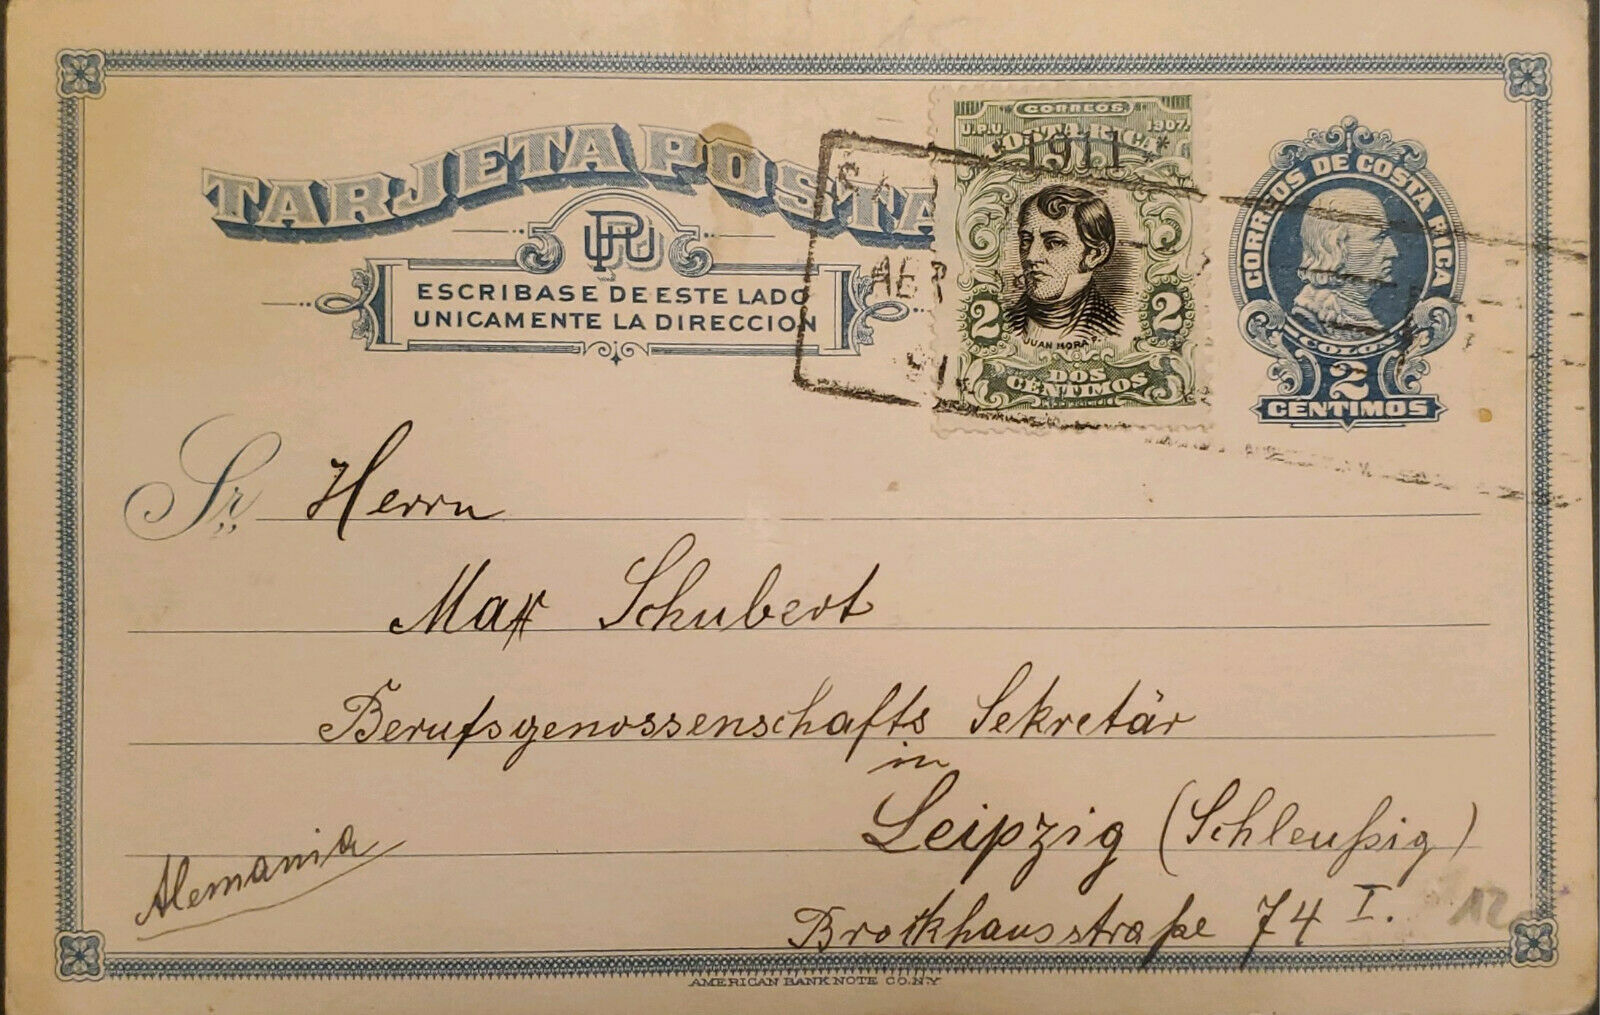 TARJETA POSTA
UPU
ESCRIBASE DE ESTE LADO
UNICAMENTE LA DIRECCION
CORREOS
U.P.U. 1907.
COSTA RICA
* 1911 *
2 2
JUAN MORA P.
DOS
CENTIMOS
CORREOS DE COSTA RICA
COLON
2
CENTIMOS
Sr. Herrn
Max Schubert
Berufsgenossenschafts Sekretär
in
Leipzig (Schleußig)
Alemania
Brockhausstraße 74 I.
12
AMERICAN BANK NOTE CO. N.Y.